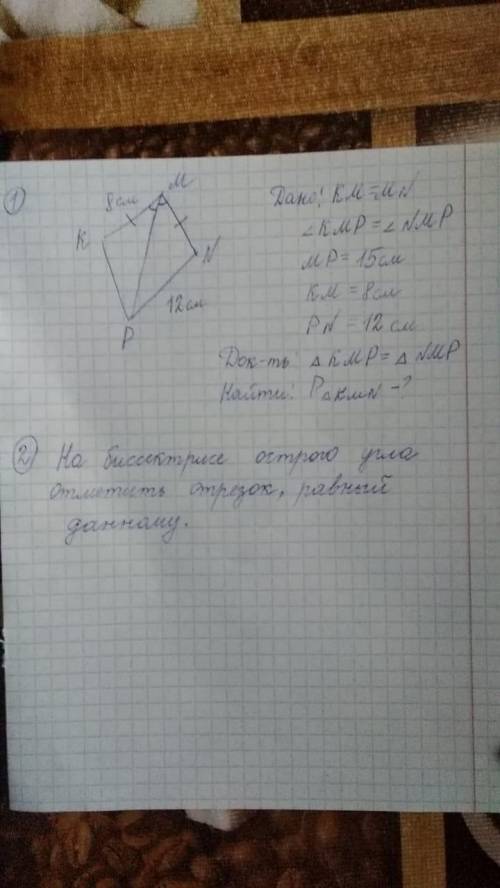 1
8см
M
K
N
12см
P
Дано: KM=MN
∠KMP=∠NMP
MP=15см
KM=8см
PN=12см
Док-ть: △KMP=△NMP
Найти: P△KMN-?
2 На биссектрисе острого угла
отметить отрезок, равный
данному.